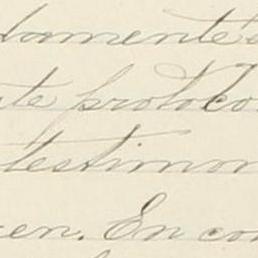 damente
te protoco
testimon
en. En con